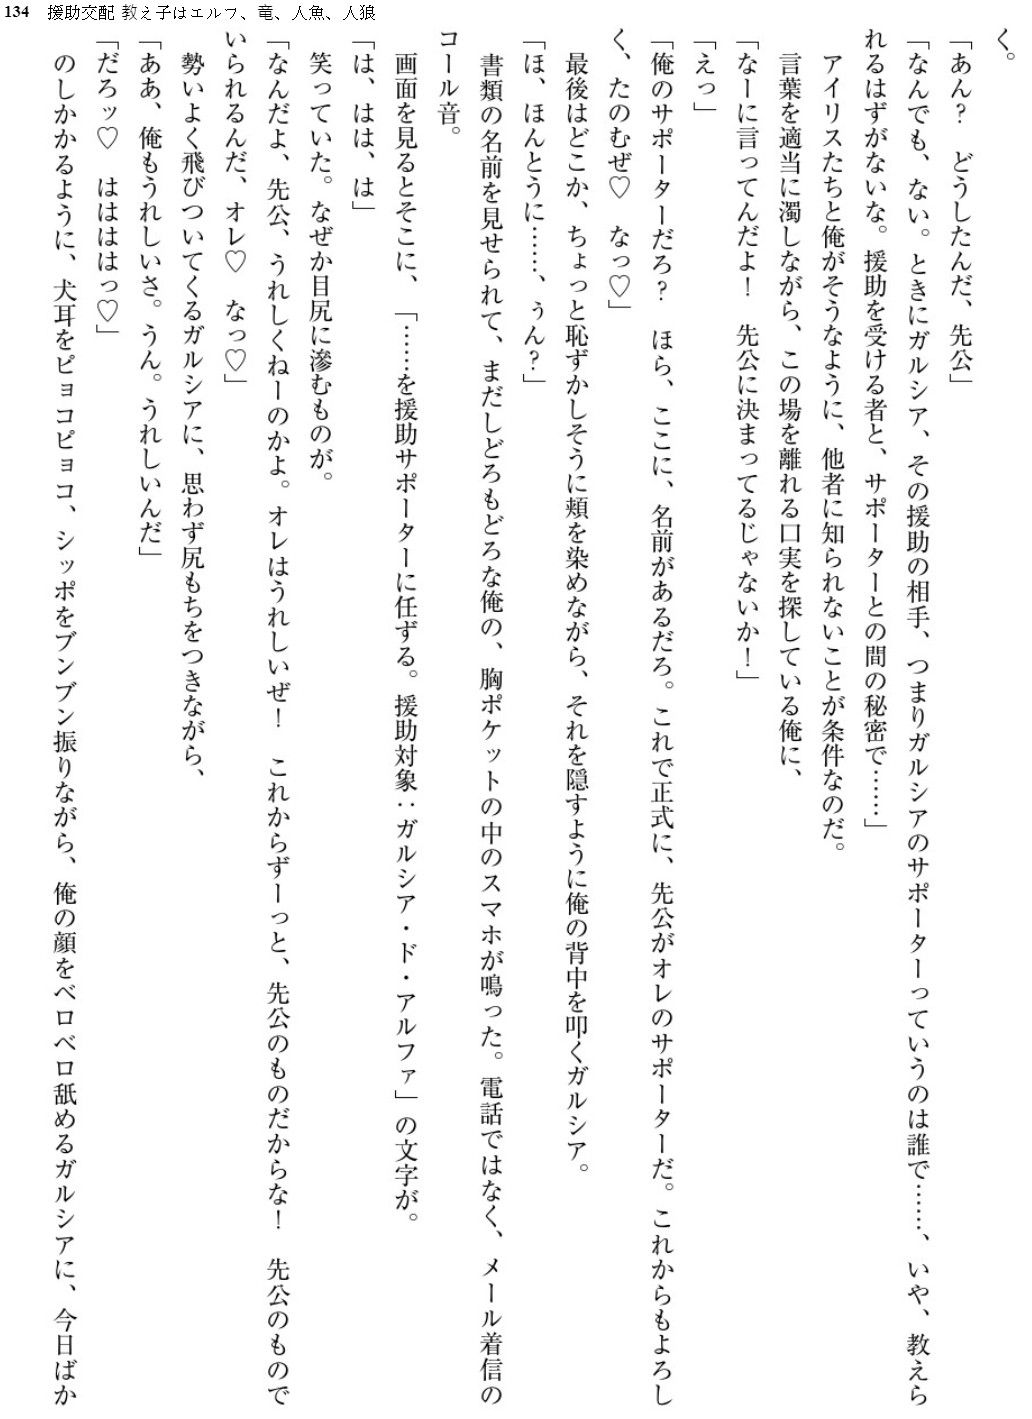 134　援助交配 教え子はエルフ、竜、人魚、人狼
く。
「あん？　どうしたんだ、先公」
「なんでも、ない。ときにガルシア、その援助の相手、つまりガルシアのサポーターっていうのは誰で……、いや、教えら
れるはずがないな。援助を受ける者と、サポーターとの間の秘密で……」
　アイリスたちと俺がそうなように、他者に知られないことが条件なのだ。
　言葉を適当に濁しながら、この場を離れる口実を探している俺に、
「なーに言ってんだよ！　先公に決まってるじゃないか！」
「えっ」
「俺のサポーターだろ？　ほら、ここに、名前があるだろ。これで正式に、先公がオレのサポーターだ。これからもよろし
く、たのむぜ♡　なっ♡」
　最後はどこか、ちょっと恥ずかしそうに頬を染めながら、それを隠すように俺の背中を叩くガルシア。
「ほ、ほんとうに……、ぅん？」
　書類の名前を見せられて、まだしどろもどろな俺の、胸ポケットの中のスマホが鳴った。電話ではなく、メール着信の
コール音。
　画面を見るとそこに、「……を援助サポーターに任ずる。援助対象：ガルシア・ド・アルファ」の文字が。
「は、はは、は」
　笑っていた。なぜか目尻に滲むものが。
「なんだよ、先公、うれしくねーのかよ。オレはうれしいぜ！　これからずーっと、先公のものだからな！　先公のもので
いられるんだ、オレ♡　なっ♡」
　勢いよく飛びついてくるガルシアに、思わず尻もちをつきながら、
「ああ、俺もうれしいさ。うん。うれしいんだ」
「だろッ♡　はははっ♡」
　のしかかるように、犬耳をピョコピョコ、シッポをブンブン振りながら、俺の顔をベロベロ舐めるガルシアに、今日ばか